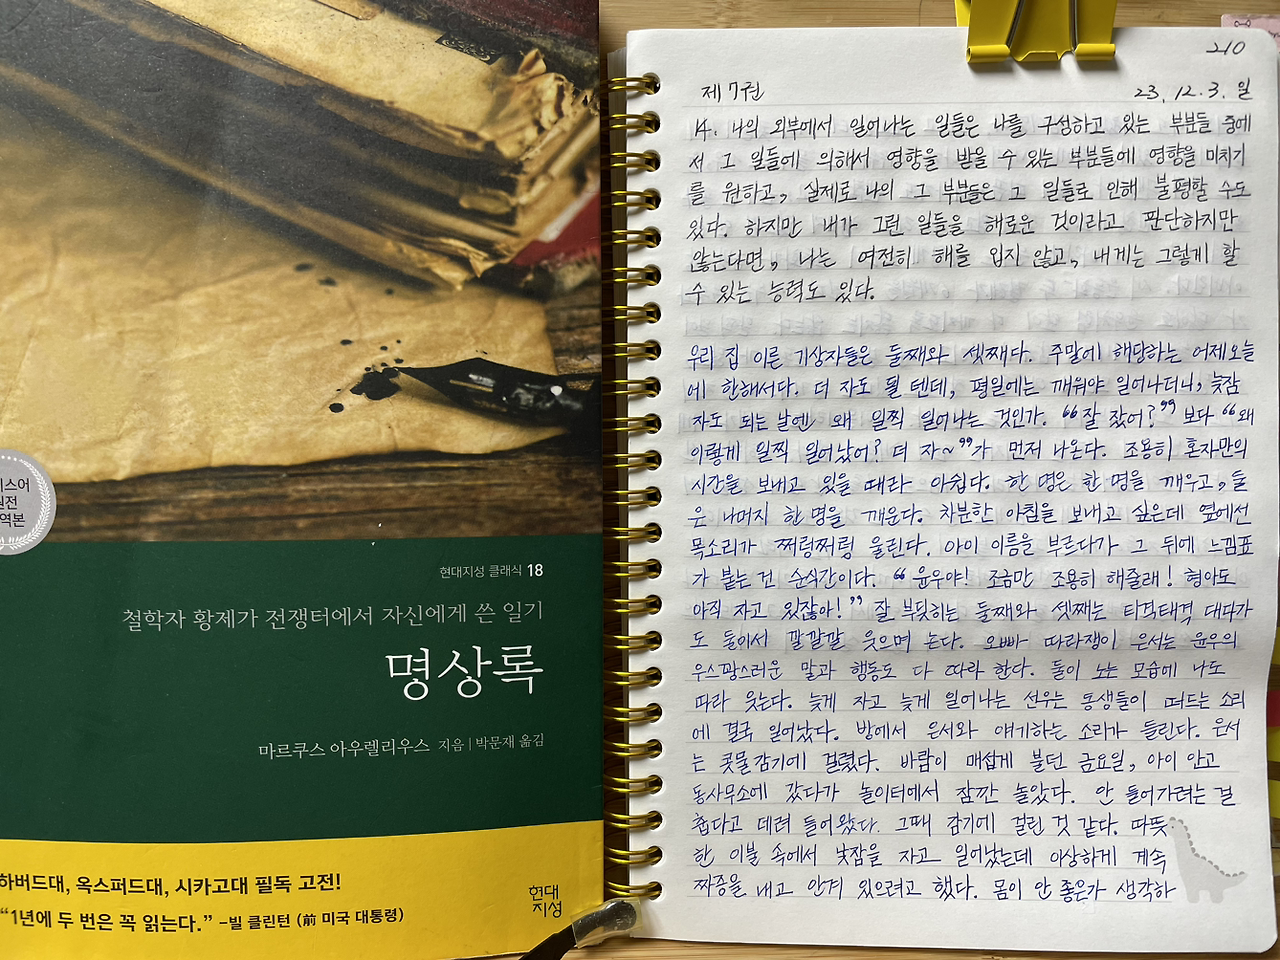 리스어
원전
역본
현대지성 클래식 18
철학자 황제가 전쟁터에서 자신에게 쓴 일기
명상록
마르쿠스 아우렐리우스 지음 | 박문재 옮김
하버드대, 옥스퍼드대, 시카고대 필독 고전!
“1년에 두 번은 꼭 읽는다.” –빌 클린턴 (前 미국 대통령)
현대
지성
210
제7권 23. 12. 3. 일
14. 나의 외부에서 일어나는 일들은 나를 구성하고 있는 부분들 중에
서 그 일들에 의해서 영향을 받을 수 있는 부분들에 영향을 미치기
를 원하고, 실제로 나의 그 부분들은 그 일들로 인해 불평할 수도
있다. 하지만 내가 그런 일들을 해로운 것이라고 판단하지만
않는다면, 나는 여전히 해를 입지 않고, 내게는 그렇게 할
수 있는 능력도 있다.
우리 집 이른 기상자들은 둘째와 셋째다. 주말에 해당하는 어제오늘
에 한해서다. 더 자도 될 텐데, 평일에는 깨워야 일어나더니, 늦잠
자도 되는 날엔 왜 일찍 일어나는 것인가. “잘 잤어?” 보다 “왜
이렇게 일찍 일어났어? 더 자~”가 먼저 나온다. 조용히 혼자만의
시간을 보내고 있을 때라 아쉽다. 한 명은 한 명을 깨우고, 둘
은 나머지 한 명을 깨운다. 차분한 아침을 보내고 싶은데 옆에선
목소리가 쩌렁쩌렁 울린다. 아이 이름을 부르다가 그 뒤에 느낌표
가 붙는 건 순식간이다. “윤우야! 조금만 조용히 해줄래! 형아도
아직 자고 있잖아!” 잘 부딪히는 둘째와 셋째는 티격태격 대다가
도 둘이서 깔깔깔 웃으며 논다. 오빠 따라쟁이 은서는 윤우의
우스꽝스러운 말과 행동도 다 따라 한다. 둘이 노는 모습에 나도
따라 웃는다. 늦게 자고 늦게 일어나는 선우는 동생들이 떠드는 소리
에 결국 일어났다. 방에서 은서와 얘기하는 소리가 들린다. 은서
는 콧물감기에 걸렸다. 바람이 매섭게 불던 금요일, 아이 안고
동사무소에 갔다가 놀이터에서 잠깐 놀았다. 안 들어가려는 걸
춥다고 데려 들어왔다. 그때 감기에 걸린 것 같다. 따뜻
한 이불 속에서 낮잠을 자고 일어났는데 이상하게 계속
짜증을 내고 안겨 있으려고 했다. 몸이 안 좋은가 생각하